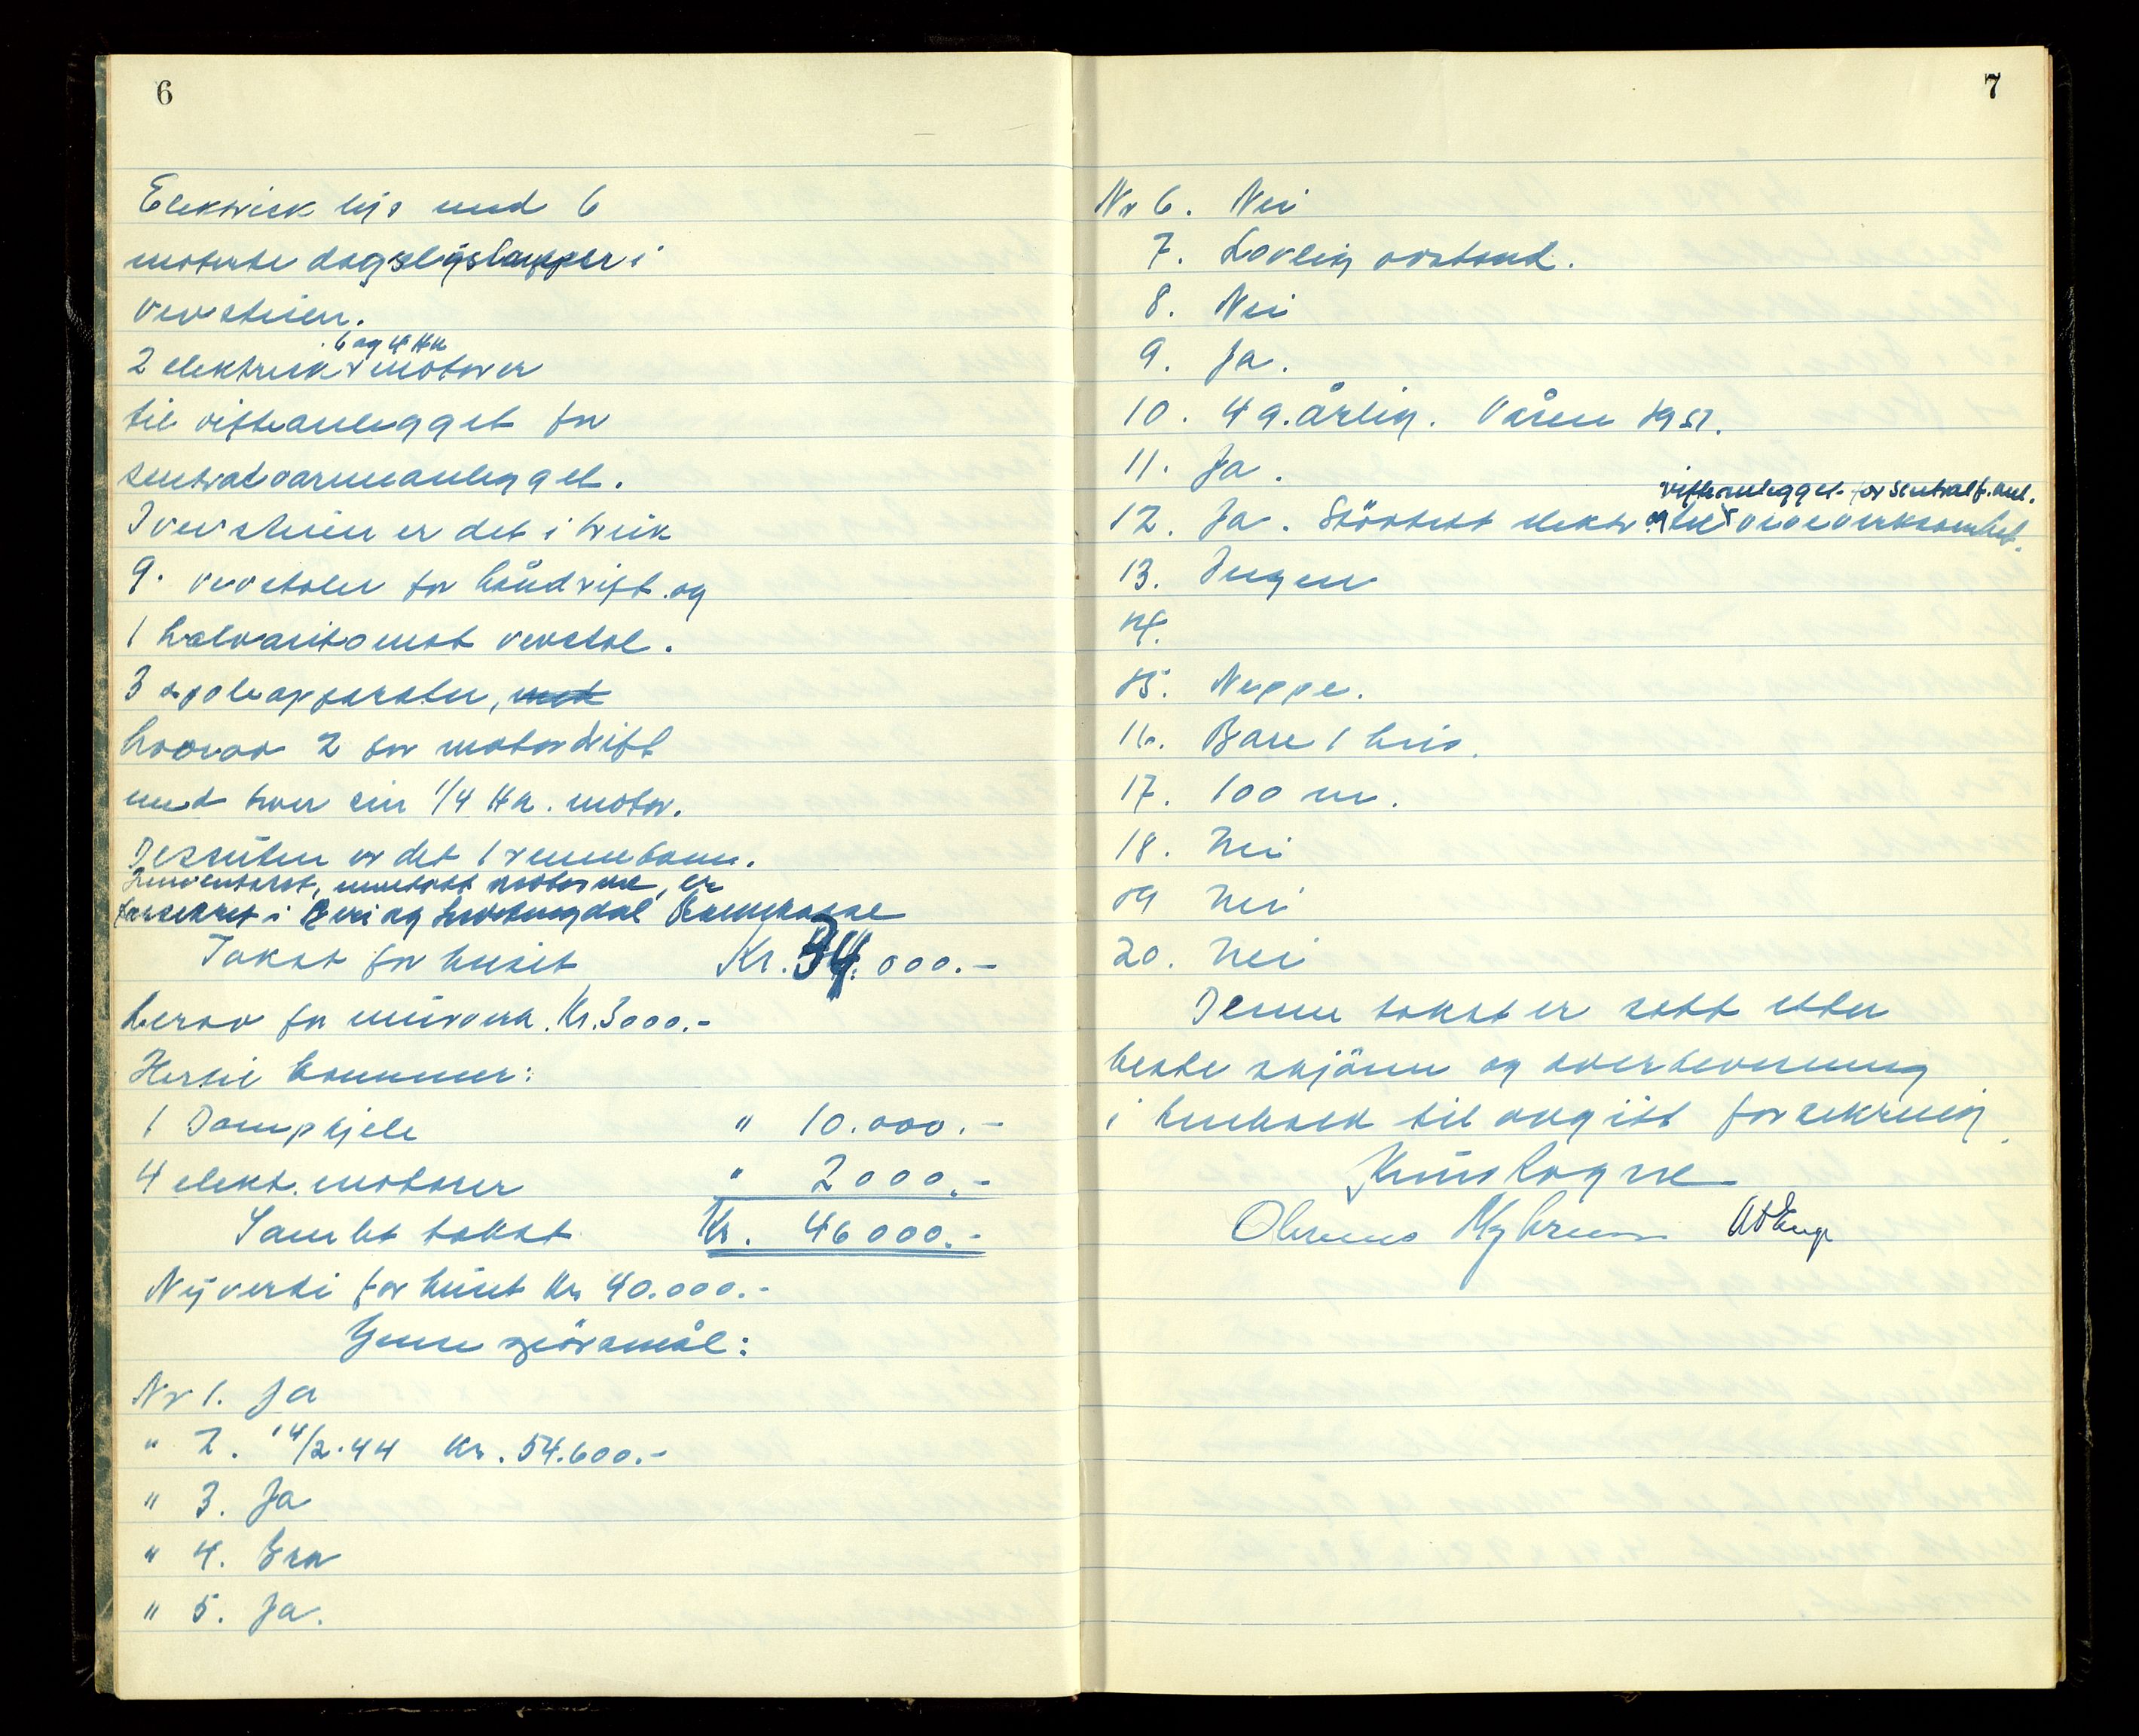 6
Elektrisk lys med 6
moterte dagslyslamper i
vevstuen.
6 og 4 Hk
2 elektrisk v motorer
til vifteanlegget for
sentralvarmeanlegget.
I vevstuen er det i bruk
9. vevstoler for håndrift og
1 halvautomat vevstol.
3 spoleapparater, med
hvorav 2 for motordrift
med hver sin 1/4 Hk. motor.
Dessuten er det 1 rennebom.
Inventaret, unntatt motorene, er
forsikret i og Brannkasse
Takst for huset Kr. 34.000.-
herav for murverk. Kr. 3000.-
Hertil kommer:
1 Dampkjele " 10.000.-
4 elekt. motorer " 2000.-
Samlet takst Kr. 46000.-
Nyverdi for huset Kr 40.000.-
spörsmål:
Nr 1. Ja
" 2. 14/2.44 Kr. 54.600.-
" 3. Ja
" 4. Bra
" 5. Ja.
7
Nr 6. Nei
7. Lovlig avstand.
8. Nei
9. Ja.
10. 4 g. årlig. Våren 1951.
11. Ja.
vifteanlegget for sentralf. anl.
12. Ja. Störstest elektr og til v vevevirksomhet.
13. Ingen
14.
15. Neppe.
16. Bare 1 hus.
17. 100 m.
18. Nei
19 Nei
20. Nei
Denne takst er satt etter
beste skjönn og overbevisning
i henhold til avgitt forsikring.